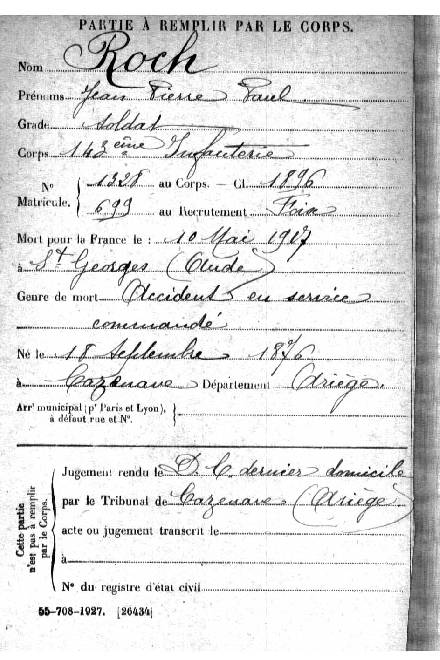 PARTIE À REMPLIR PAR LE CORPS.
Nom Roch
Prénoms Jean Pierre Paul
Grade soldat
Corps 143ème Infanterie
N° Matricule. { 1328 au Corps. — Cl. 1896
699 au Recrutement Foix
Mort pour la France le : 10 Mai 1917
à St Georges (Aude)
Genre de mort Accident en service
commandé
Né le 18 Septembre 1876
à Cazenave Département Ariège.
Arrt municipal (pr Paris et Lyon), à défaut rue et N°. }
Cette partie n'est pas à remplir par le Corps.
Jugement rendu le D. C. dernier domicile
par le Tribunal de Cazenave (Ariège)
acte ou jugement transcrit le
à
N° du registre d'état civil
55-708-1927. [26434]